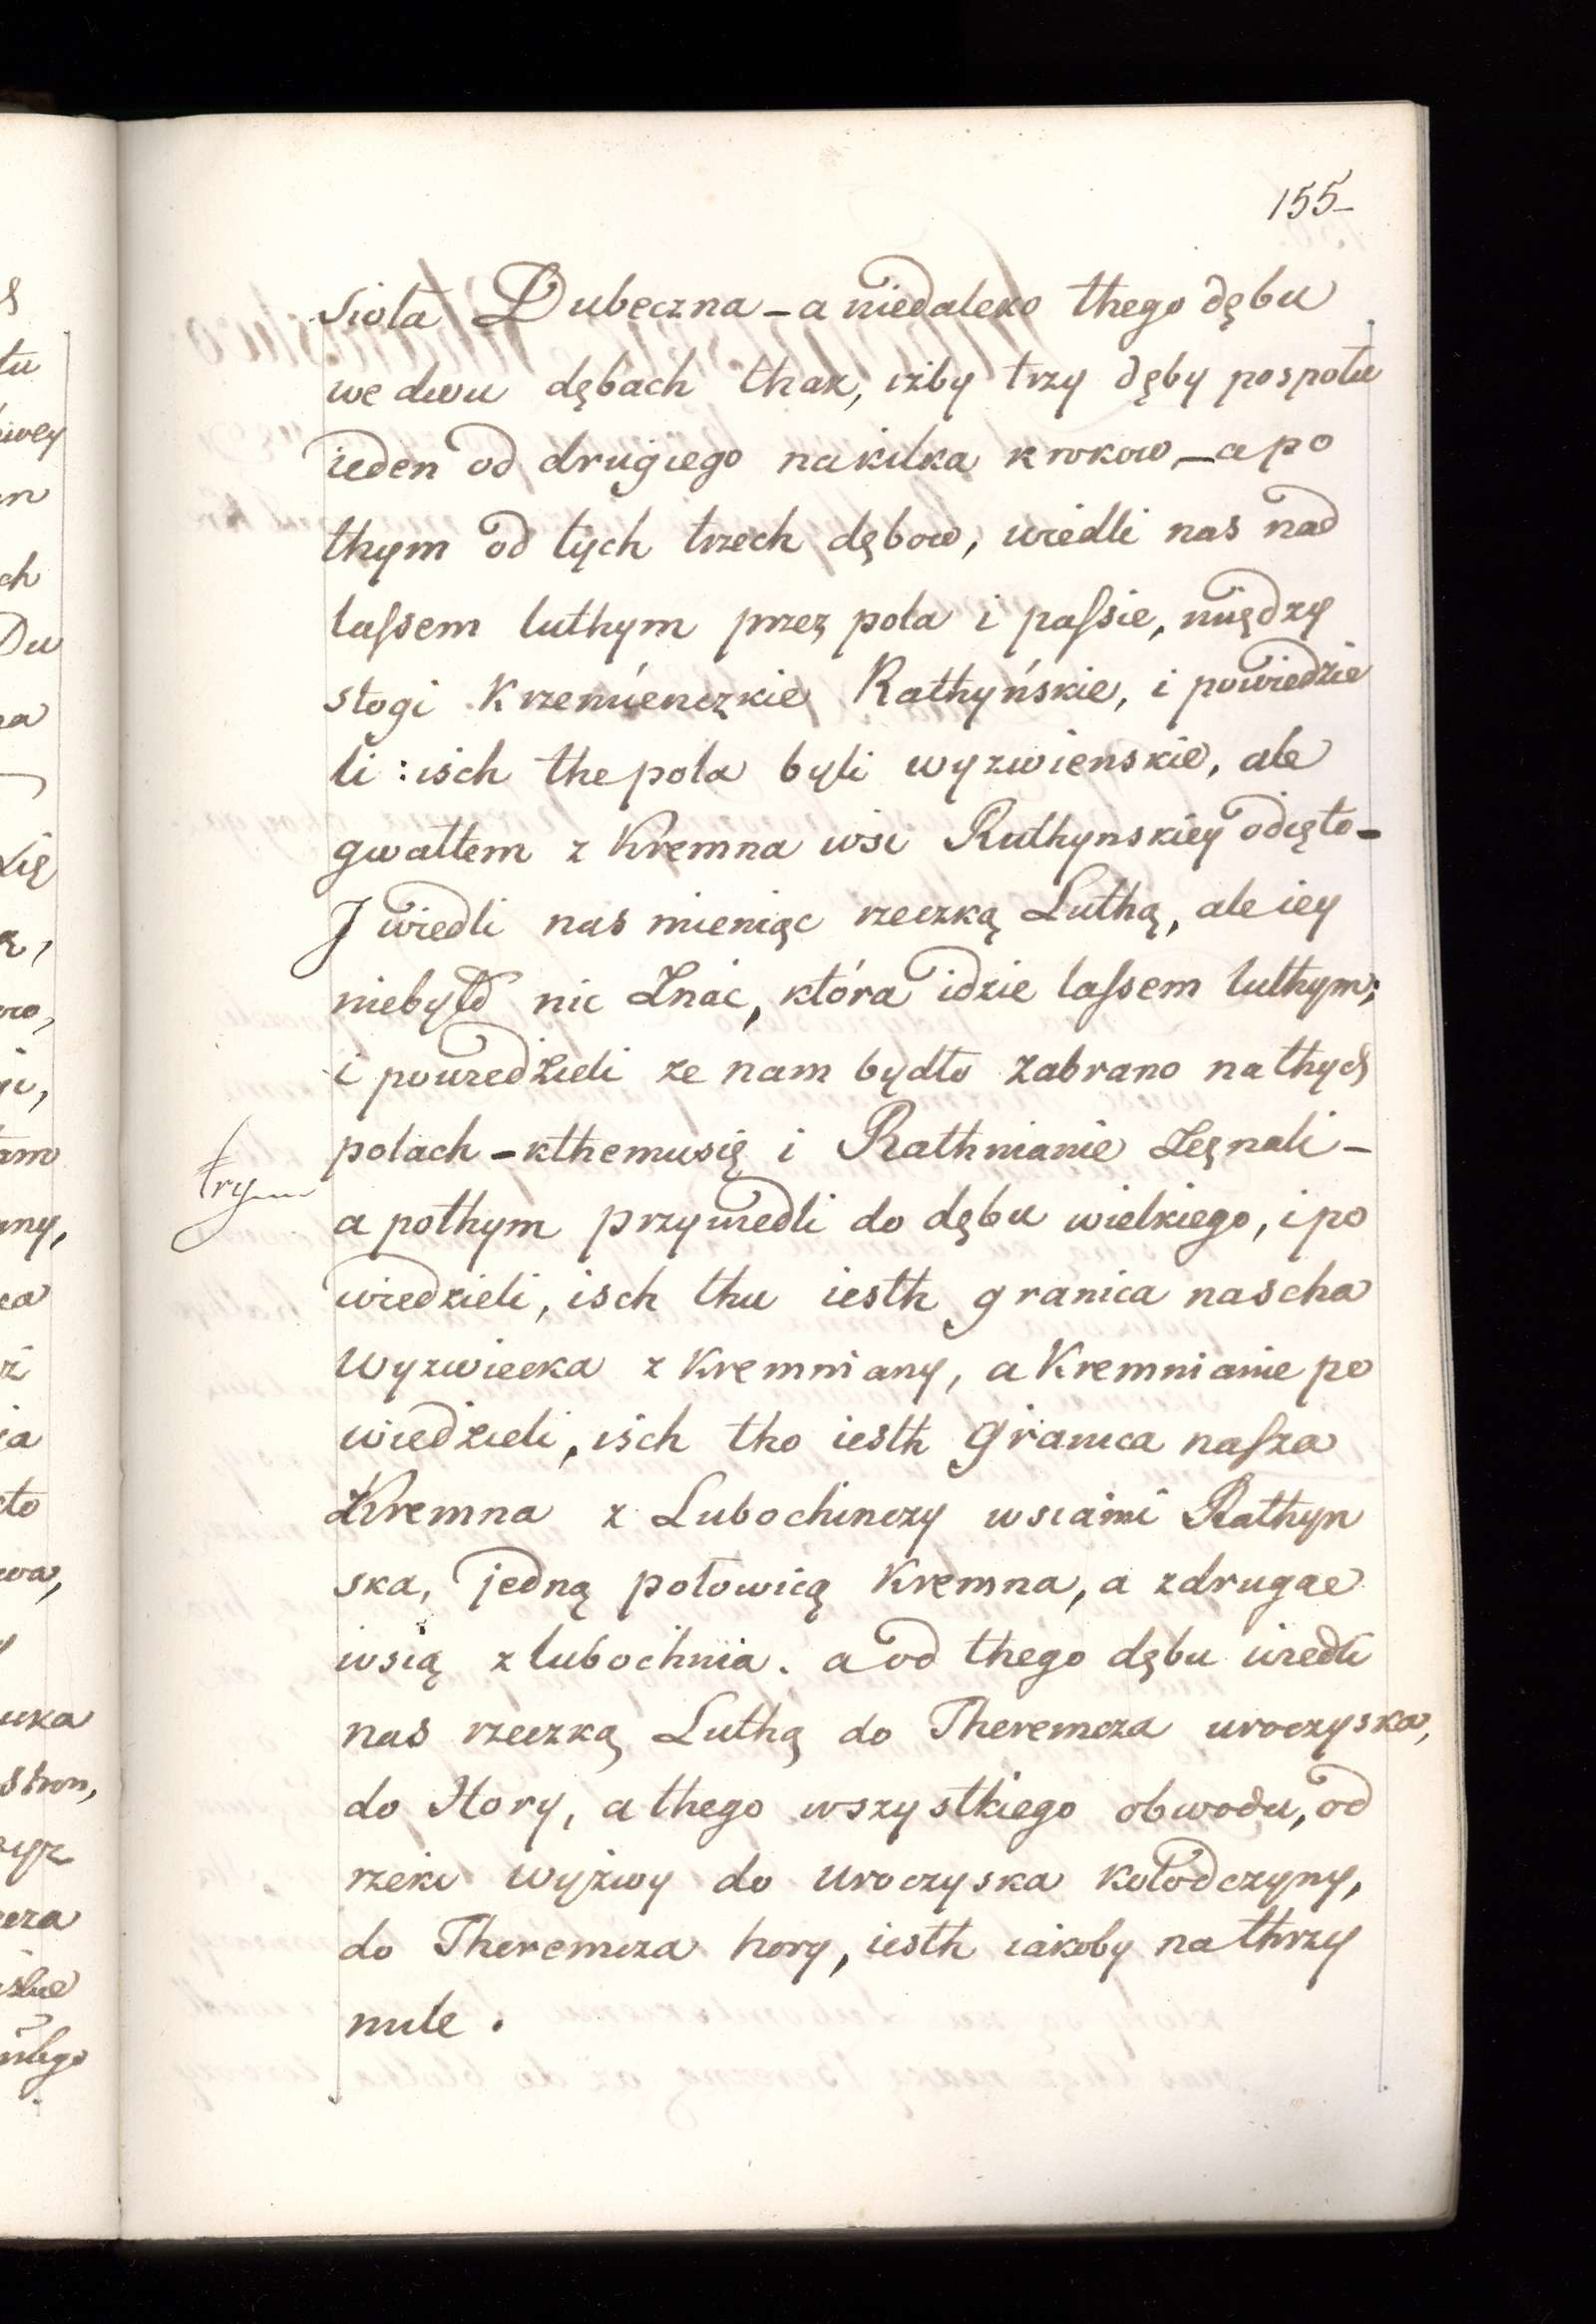 155
sioła Dubeczna – a niedaleko thego dębu
we dwu dębach thak, iżby trzy dęby pospołu
ieden od drugiego nakilka krokow – a po
thym od tych trzech dębow, wiedli nas nad
lassem luthym przez pola i passie, między
stogi Krzemienczkie Rathyńskie, i powiedzie
li : isch the pola byli wyzwienskie, ale
gwałtem z Kremna wsi Rathynskiey odięto –
J wiedli nas mieniąc rzeczką Luthą, ale iey
niebyło nic znać, która idzie lassem luthym;
i powiedzieli ze nam bydło zabrano na thych
polach – kthemusię i Rathnianie zeznali –
a pothym przywiedli do dębu wielkiego, i po
wiedzieli, isch thu iesth granica nascha
Wyzwiecka z Kremniany, a Kremnianie po
wiedzieli, isch tho iesth granica nasza
Kremna z Lubochinczy wsiami Rathyn
ska, jedną połowicą Kremna, a zdrugae
wsią z lubochnia. a od thego dębu wiedli
nas rzeczką Luthą do Theremcza uroczyska,
do Hory, a thego wszystkiego obwodu, od
rzeki Wyżwy do Uroczyska Kołodczyny,
do Theremcza hory, iesth iakoby na thrzy
mile.